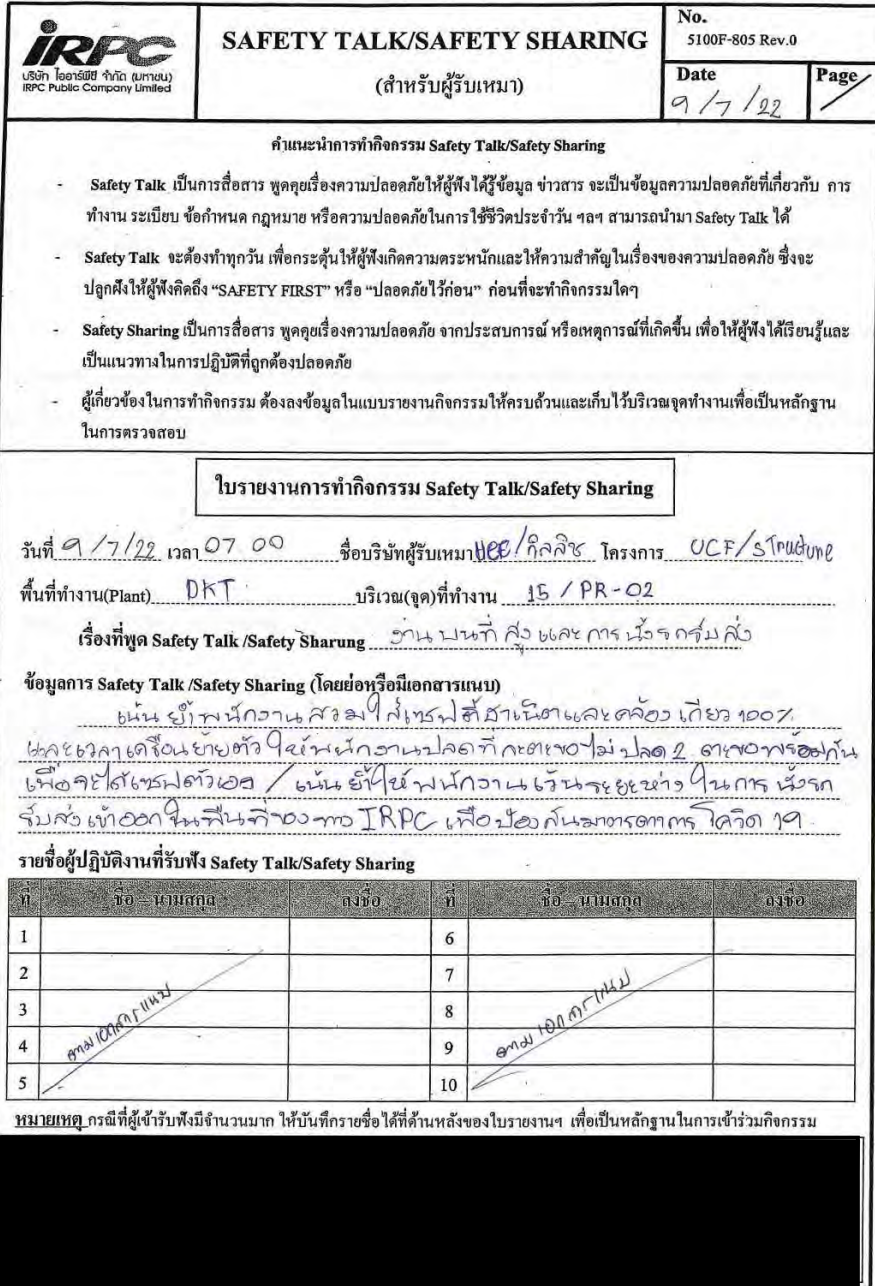 iRPC
บริษัท ไออาร์พีซี จำกัด (มหาชน)
IRPC Public Company Limited
SAFETY TALK/SAFETY SHARING
(สำหรับผู้รับเหมา)
No.
5100F-805 Rev.0
Date
9/7/22
Page
คำแนะนำการทำกิจกรรม Safety Talk/Safety Sharing
- Safety Talk เป็นการสื่อสาร พูดคุยเรื่องความปลอดภัยให้ผู้ฟังได้รู้ข้อมูล ข่าวสาร จะเป็นข้อมูลความปลอดภัยที่เกี่ยวกับ การ
ทำงาน ระเบียบ ข้อกำหนด กฎหมาย หรือความปลอดภัยในการใช้ชีวิตประจำวัน ฯลฯ สามารถนำมา Safety Talk ได้
- Safety Talk จะต้องทำทุกวัน เพื่อกระตุ้นให้ผู้ฟังเกิดความตระหนักและให้ความสำคัญในเรื่องของความปลอดภัย ซึ่งจะ
ปลูกฝังให้ผู้ฟังคิดถึง “SAFETY FIRST” หรือ “ปลอดภัยไว้ก่อน” ก่อนที่จะทำกิจกรรมใดๆ
- Safety Sharing เป็นการสื่อสาร พูดคุยเรื่องความปลอดภัย จากประสบการณ์ หรือเหตุการณ์ที่เกิดขึ้น เพื่อให้ผู้ฟังได้เรียนรู้และ
เป็นแนวทางในการปฏิบัติที่ถูกต้องปลอดภัย
- ผู้เกี่ยวข้องในการทำกิจกรรม ต้องลงข้อมูลในแบบรายงานกิจกรรมให้ครบถ้วนและเก็บไว้บริเวณจุดทำงานเพื่อเป็นหลักฐาน
ในการตรวจสอบ
ใบรายงานการทำกิจกรรม Safety Talk/Safety Sharing
วันที่ 9/7/22 เวลา 07 00 ชื่อบริษัทผู้รับเหมา โครงการ UCF/Structure
พื้นที่ทำงาน(Plant) DKT บริเวณ(จุด)ที่ทำงาน 15 / PR-02
เรื่องที่พูด Safety Talk /Safety Sharung งานบนที่สูงและการนั่งรถรับส่ง
ข้อมูลการ Safety Talk /Safety Sharing (โดยย่อหรือมีเอกสารแนบ)
เน้นย้ำพนักงานสวมใส่เซฟตี้ฮาเน็ตและคล้องเกี่ยว 100%
และเวลาเคลื่อนย้ายตัวให้พนักงานปลดทีละตะขอไม่ปลด 2 ตะขอพร้อมกัน
เพื่อจะได้เซฟตัวเอง / เน้นย้ำให้พนักงานเว้นระยะห่างในการนั่งรถ
รับส่งเข้าออกในพื้นที่ของทาง IRPC เพื่อป้องกันมาตรตาการโควิด 19
รายชื่อผู้ปฏิบัติงานที่รับฟัง Safety Talk/Safety Sharing
ที่ ชื่อ – นามสกุล ลงชื่อ ที่ ชื่อ – นามสกุล ลงชื่อ
1 6
2 7
3 8
4 9
5 10
ตามเอกสารแนบ ตามเอกสารแนบ
หมายเหตุ กรณีที่ผู้เข้ารับฟังมีจำนวนมาก ให้บันทึกรายชื่อได้ที่ด้านหลังของใบรายงานฯ เพื่อเป็นหลักฐานในการเข้าร่วมกิจกรรม